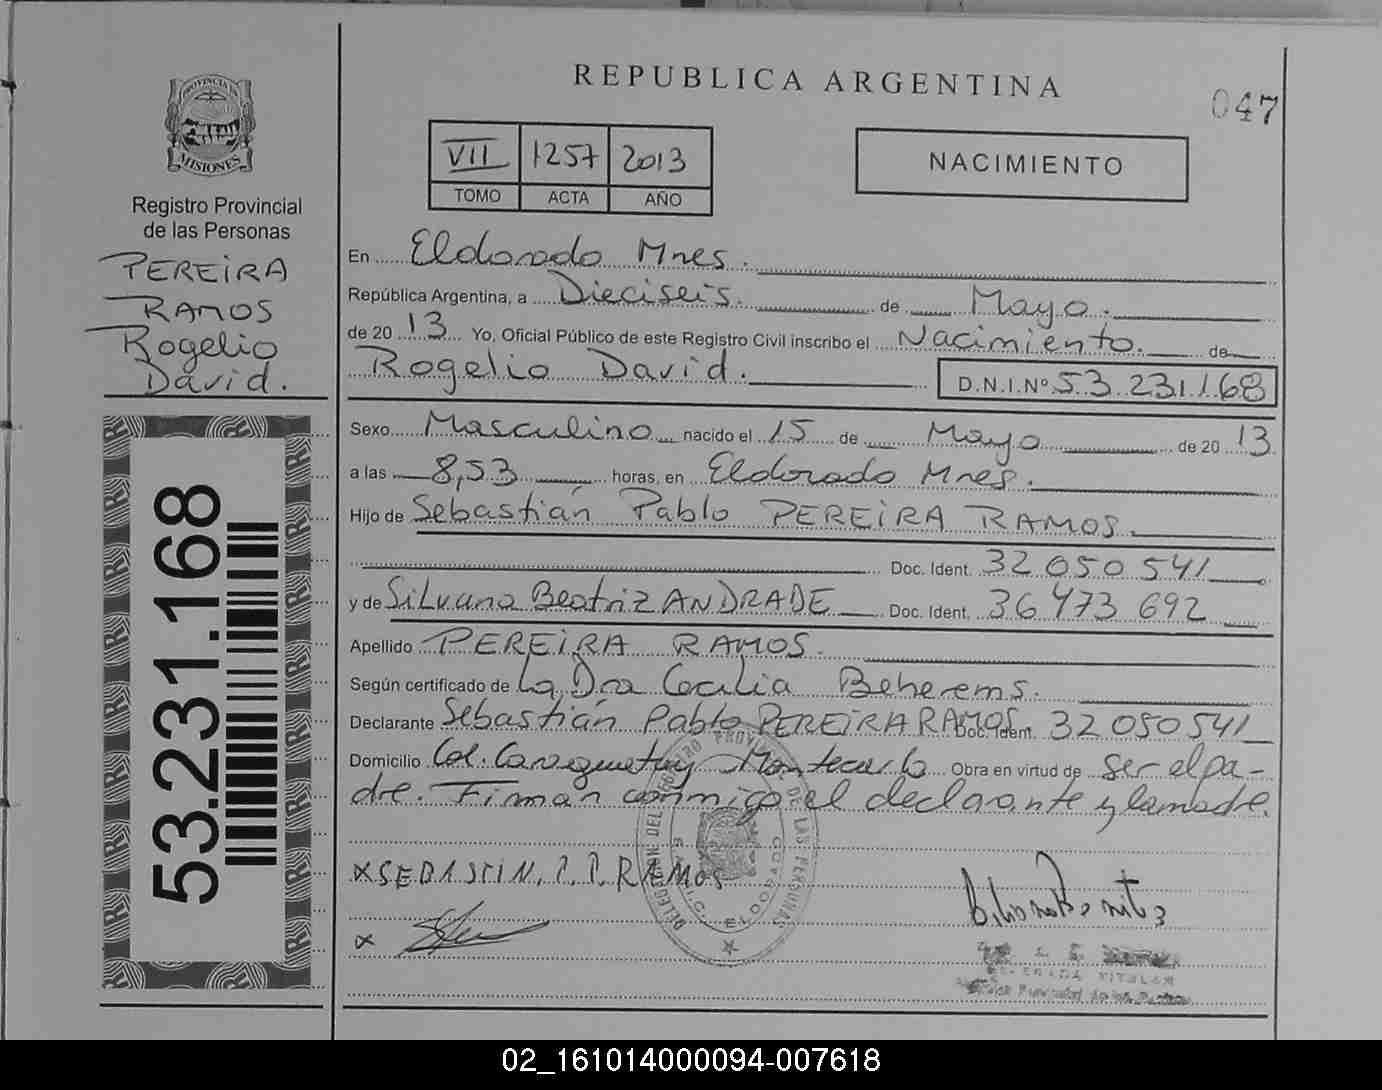 REPUBLICA ARGENTINA
047
PROVINCIA DE
MISIONES
Registro Provincial
de las Personas
PEREIRA
RAMOS
Rogelio
David.
53.231.168
VII 1257 2013
TOMO ACTA AÑO
NACIMIENTO
En Eldorado Mnes.
República Argentina, a Dieciseis. de Mayo.
de 20 13 Yo, Oficial Público de este Registro Civil inscribo el Nacimiento. de
Rogelio David. D.N.I.Nº 53.231.168
Sexo Masculino nacido el 15 de Mayo de 20 13
a las 8,53 horas, en Eldorado Mnes.
Hijo de Sebastián Pablo PEREIRA RAMOS.
Doc. Ident. 32 050 541
y de Silvana Beatriz ANDRADE Doc. Ident. 36 473 692
Apellido PEREIRA RAMOS.
Según certificado de La Dra Cecilia Beherems.
Declarante Sebastián Pablo PEREIRA RAMOS Doc. Ident. 32 050 541
Domicilio Col. Caraguatay Montecarlo Obra en virtud de ser el pa-
dre. Firman conmigo el declarante y la madre.
x SEBASTIN. P. P. RAMOS
x
DELEGACION DEL REGISTRO PROVINCIAL DE LAS PERSONAS
ELDORADO
02_161014000094-007618